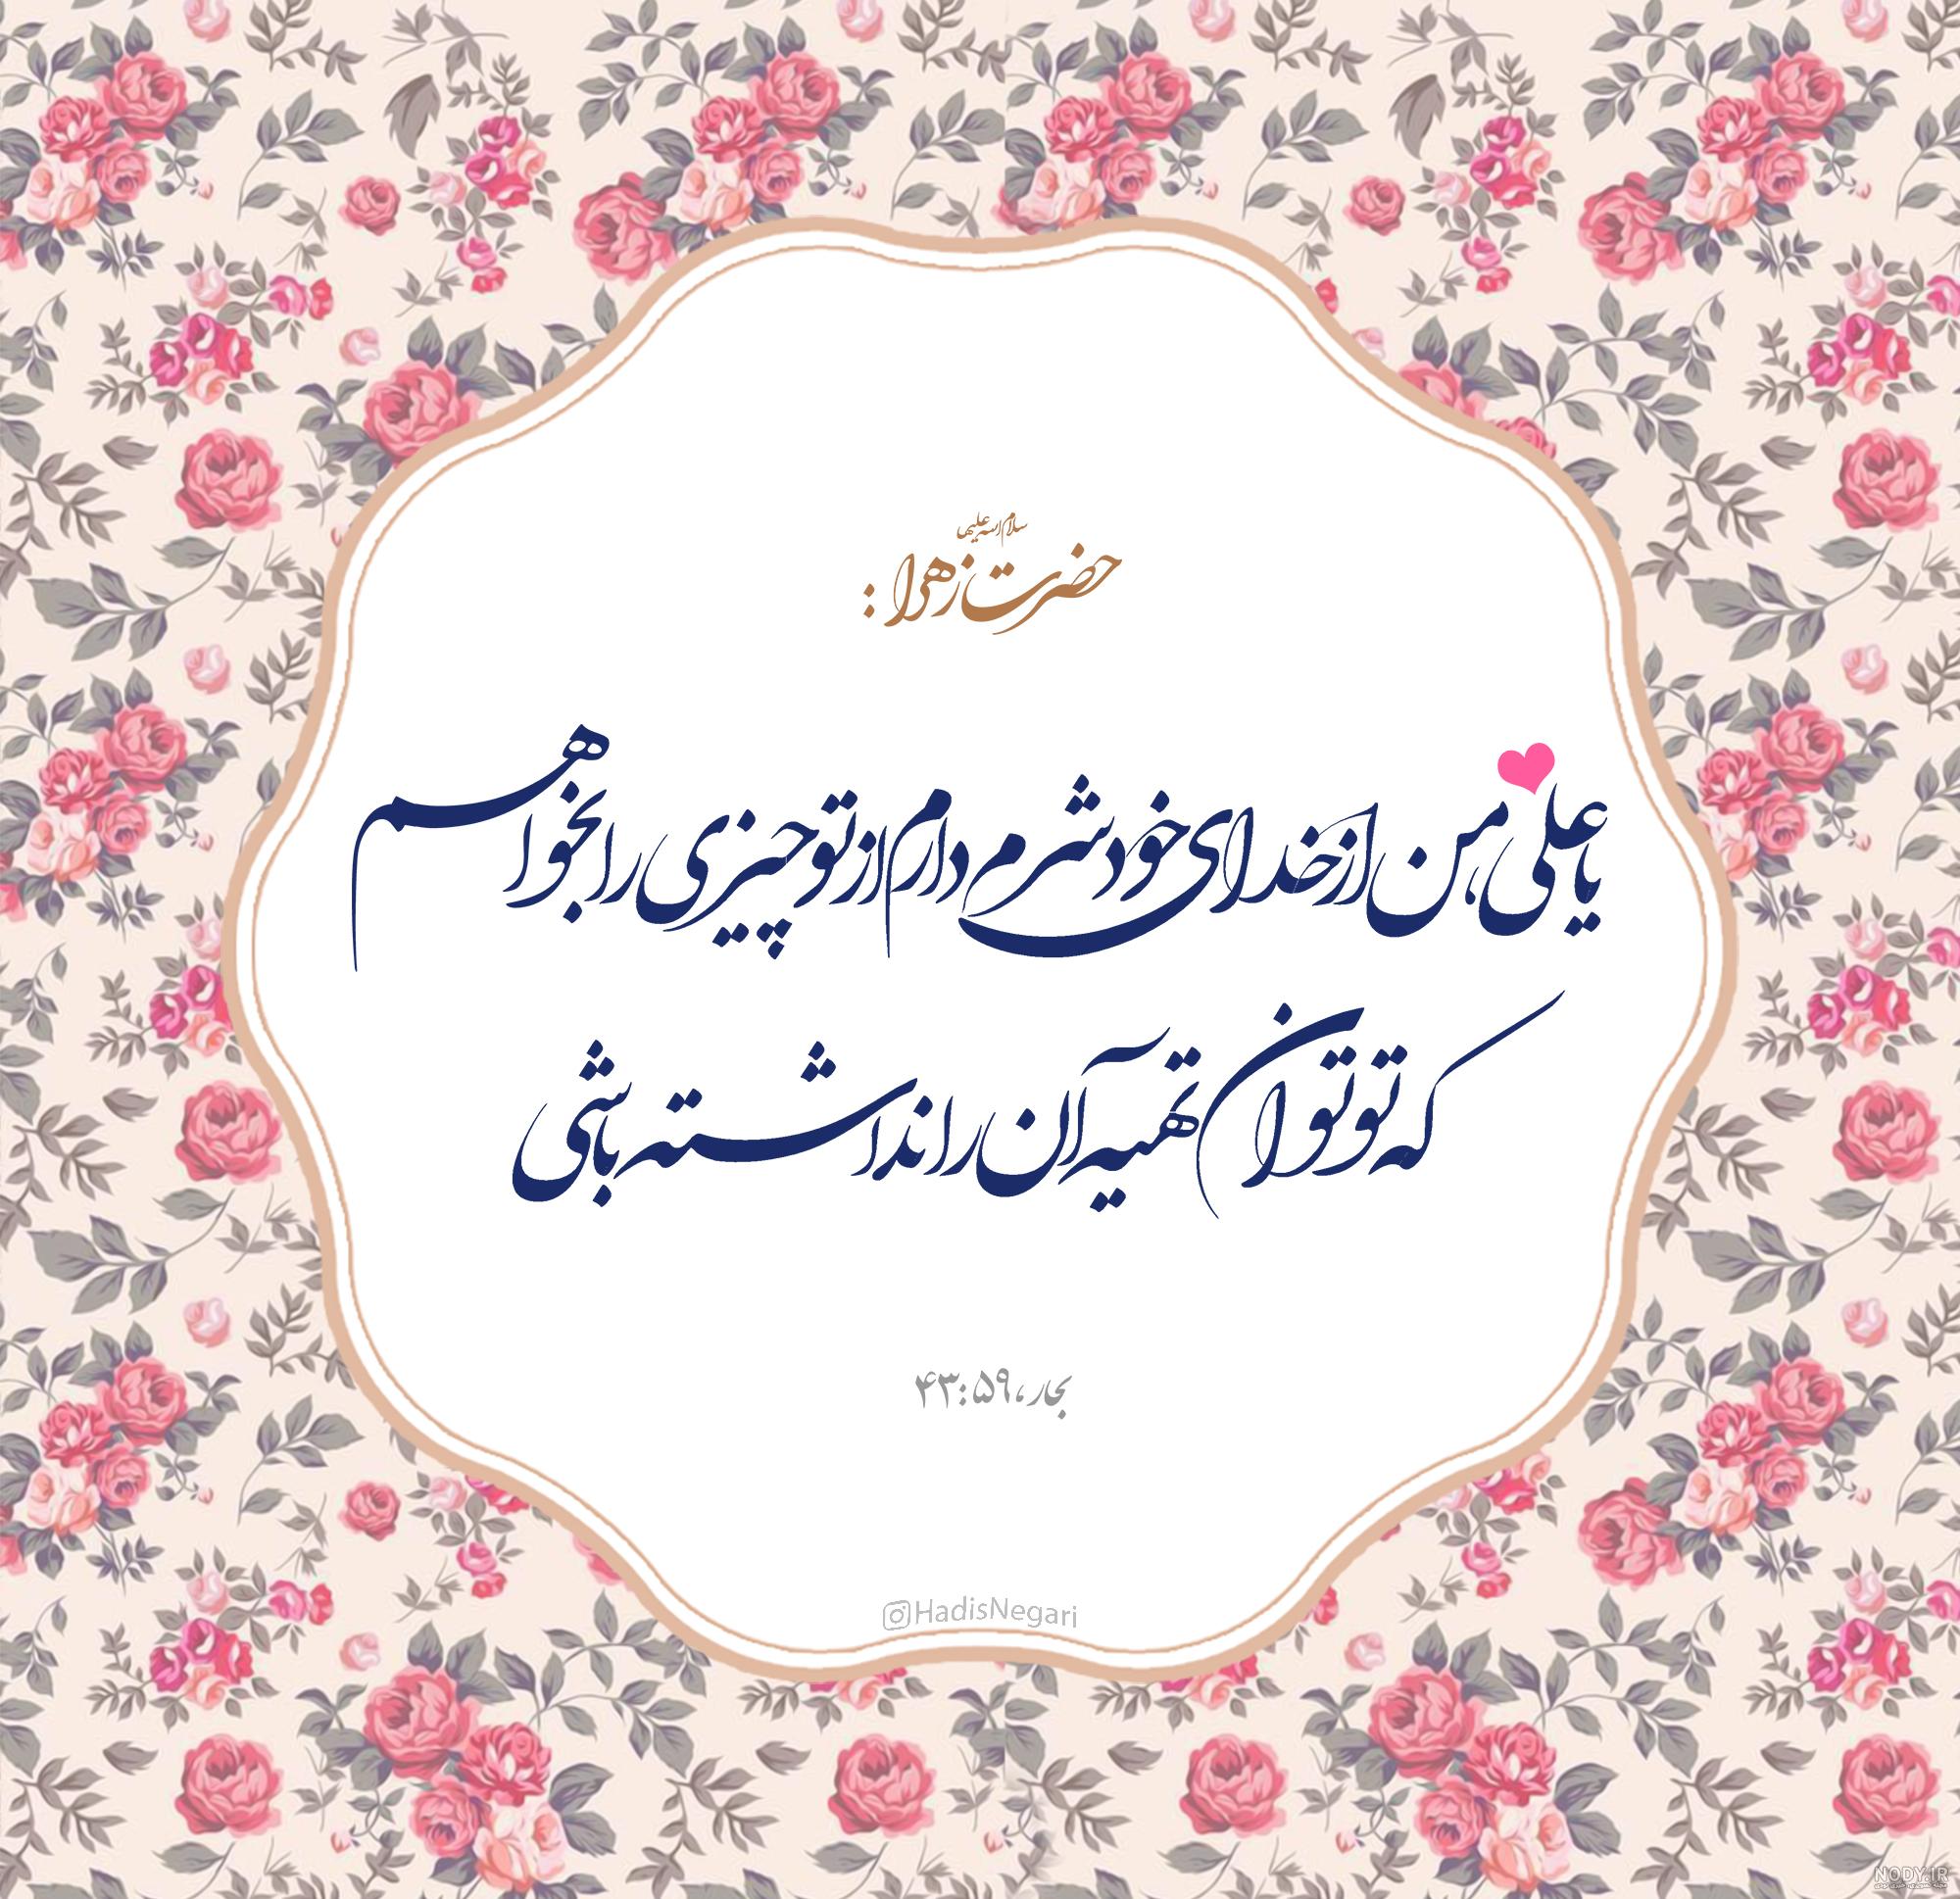 سلام الله علیها
حضرت زهرا :
یا علی، من از خدای خود شرم دارم از تو چیزی را بخواهم
که تو توان تهیه آن را نداشته باشی
بحار، ۴۳:۵۹
@HadisNegari
NODY.IR